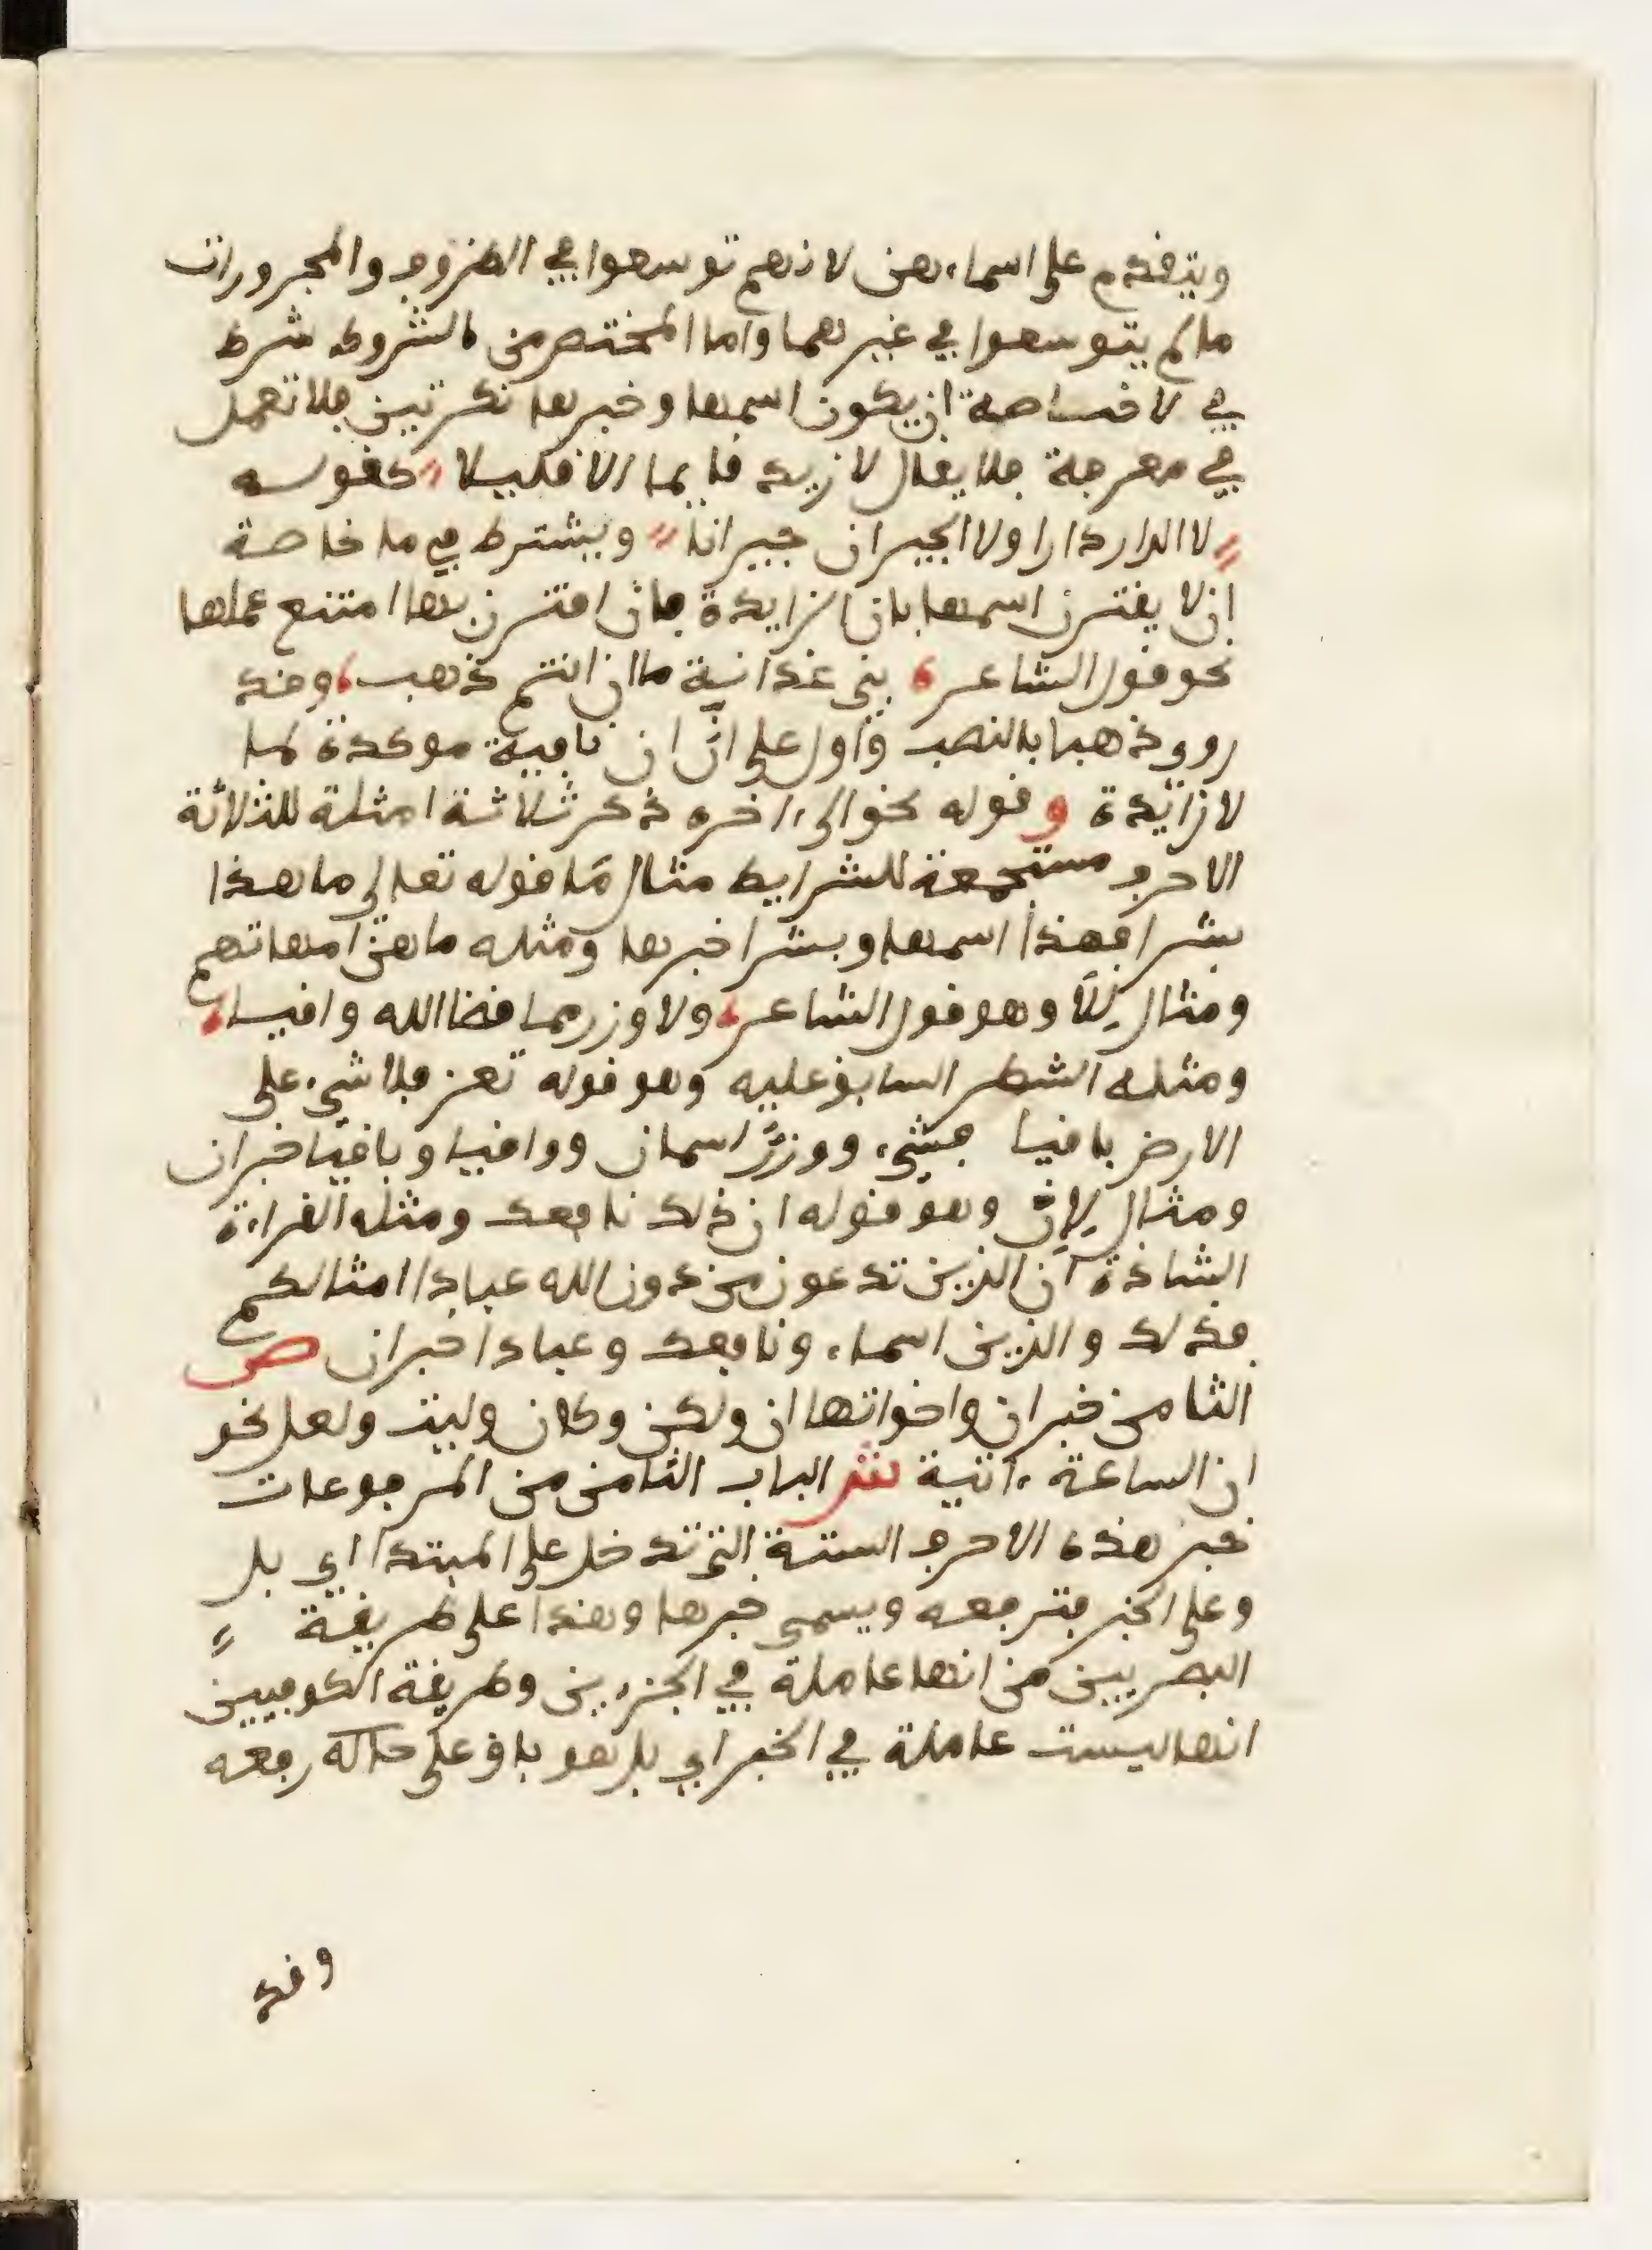 ويتقدم على اسماءهن لانهم توسعوا في الظروف والمجرورات
ما لم يتوسعوا في غيرهما واما المختص من الشروط شرط
في لا خاصة ان يكون اسمها وخبرها نكرتين فلا تعمل
في معرفة فلا يقال لا زيد قايما الا قليلا كقوله
لا الدار دارا ولا الجيران جيرانا ويشترط في ما خاصة
ان لا يقترن اسمها بان الزايدة فان اقترن بها امتنع عملها
نحو قول الشاعر بني غدانية ما ان انتم ذهب وقد
روي ذهبا بالنصب واول على ان ان نافية موكدة لما
لا زائدة وقوله نحو الى اخره ذكر ثلاثة امثلة للثلاثة
الاحرف مستجمعة للشرايط مثال ما قوله تعالى ما هذا
بشرا فهذا اسمها وبشرا خبرها ومثله ما هن امهاتهم
ومثال للا وهو قول الشاعر ولا وزر مما قضا الله واقيا
ومثله الشطر السابق عليه وهو قوله تعز فلا شيء على
الارض باقيا فشيء ووزر اسمان وواقيا وباقيا خبران
ومثال لان وهو قوله ان ذلك نافعك ومثله القراءة
الشاذة ان الذين تدعون من دون الله عبادا امثالكم
فذلك والذين اسماء ونافعك وعبادا خبران ص
الثامن خبر ان واخواتها ان ولكن وكان وليت ولعل نحو
ان الساعة ءاتية ش الباب الثامن من المرفوعات
خبر هذه الاحرف الستة التي تدخل على المبتدا اي بل
وعلى الخبر فترفعه ويسمى خبرها وهذا على طريقة
البصريين من انها عاملة في الجزءين وطريقة الكوفيين
انها ليست عاملة في الخبر اي بل هو باق على حاله رفعه
وقد